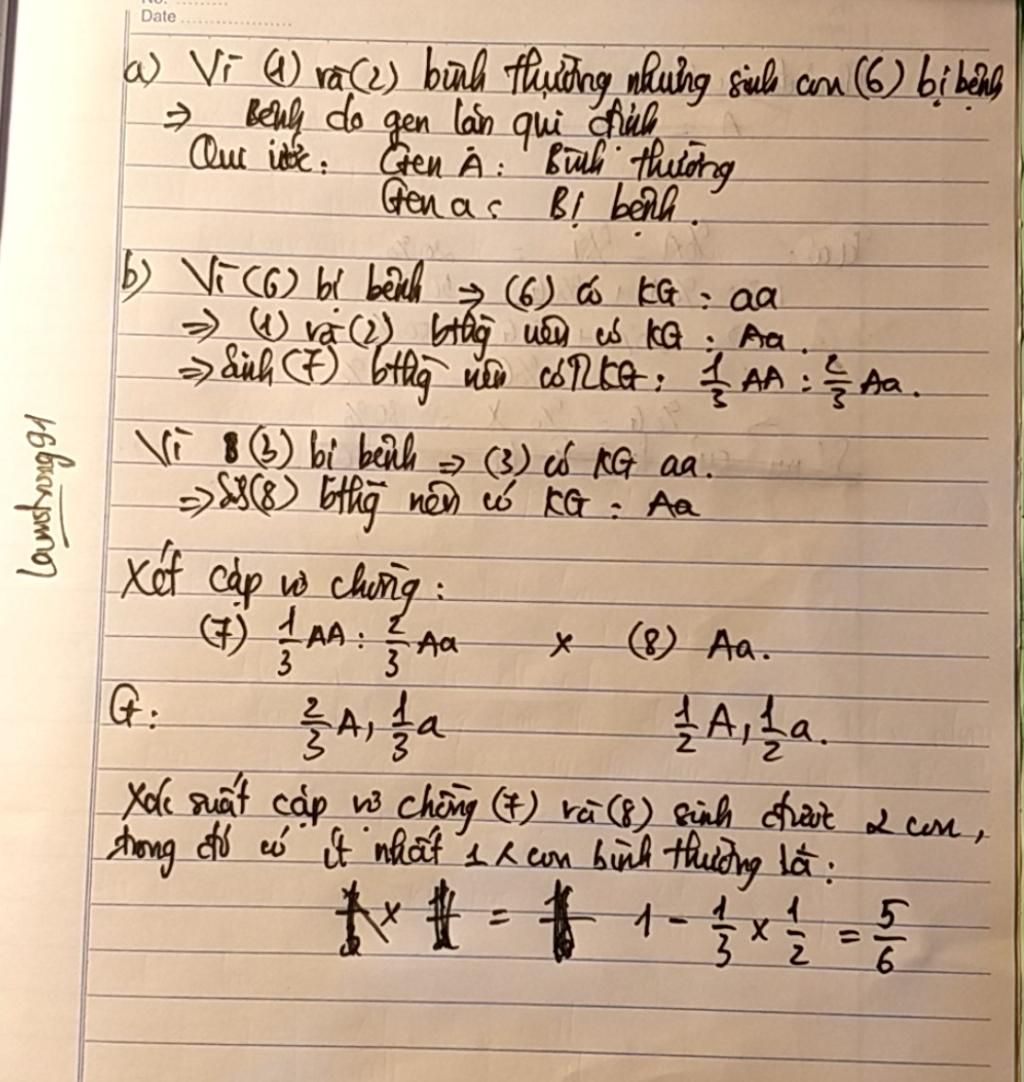 No. .........
Date ..................
a) Vì (1) và (2) bình thường nhưng sinh con (6) bị bệnh
=> Bệnh do gen lặn qui định
Qui ước: Gen A: Bình thường
Gen a: Bị bệnh.
b) Vì (6) bị bệnh => (6) có KG: aa
=> (1) và (2) bthg nên có KG: Aa.
=> Sinh (7) bthg nên có KG: 1/3 AA : 2/3 Aa.
Vì (3) bị bệnh => (3) có KG aa.
=> (8) bthg nên có KG: Aa
Xét cặp vợ chồng:
(7) 1/3 AA : 2/3 Aa x (8) Aa.
G: 2/3 A, 1/3 a 1/2 A, 1/2 a.
Xác suất cặp vợ chồng (7) và (8) sinh được 2 con,
trong đó có ít nhất 1 con bình thường là:
x = 1 - 1/3 x 1/2 = 5/6